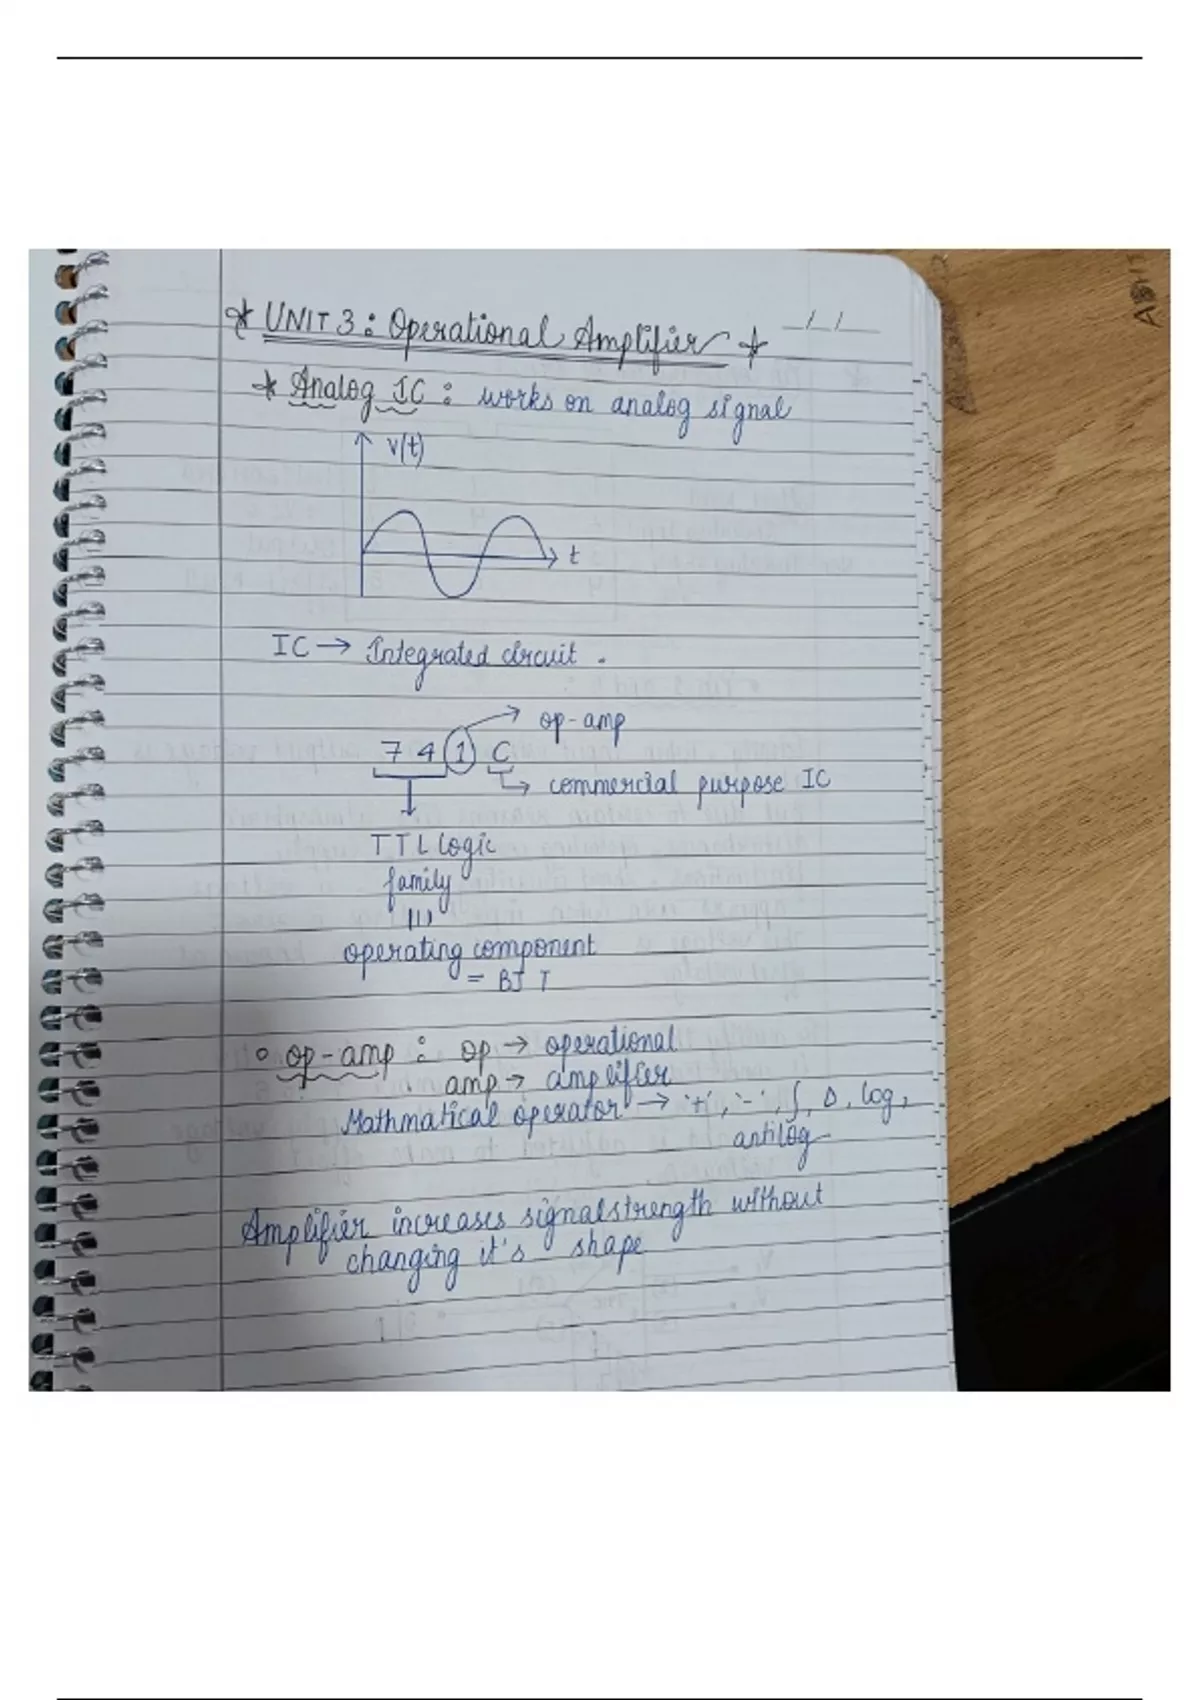 * UNIT 3 : Operational Amplifier *
_/_/_
* Analog IC : works on analog signal
V(t)
t
IC → Integrated circuit .
→ op-amp
7 4 1 C
→ commercial purpose IC
TTL logic
family
operating component
= BJT
op-amp : op → operational
amp → amplifier
Mathmatical operator → '+', '-', ∫, Δ, log,
antilog
Amplifier increases signal strength without
changing it's shape